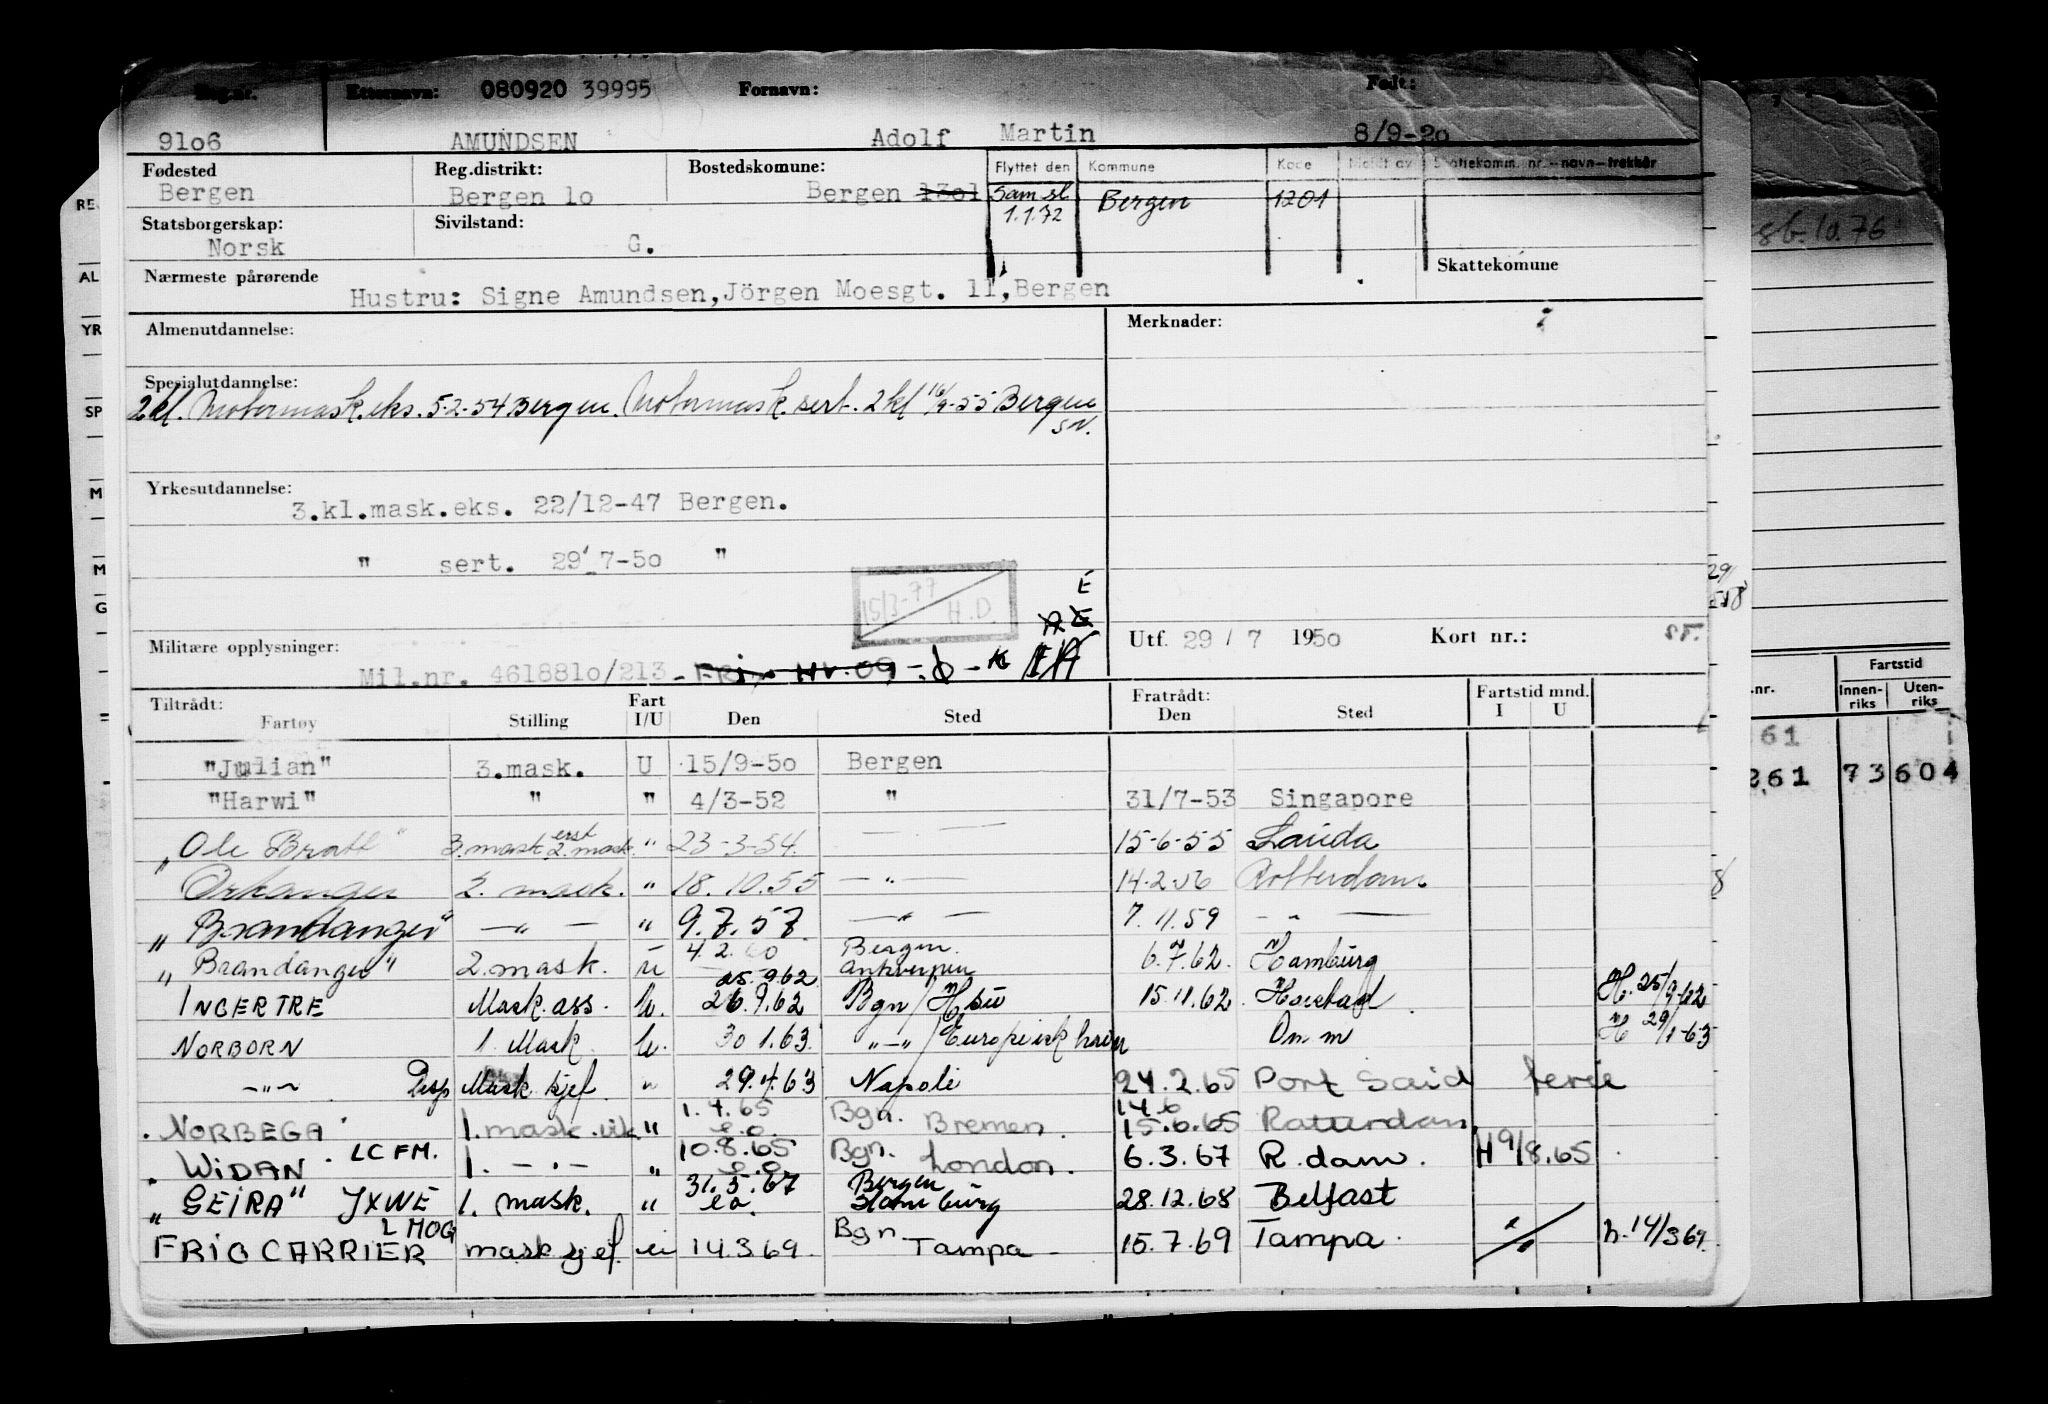 Reg.nr. Etternavn: 080920 39995 Fornavn: Født:
91o6 AMUNDSEN Adolf Martin 8/9-2o
Fødested Reg.distrikt: Bostedskomune: Flyttet den Kommune Kode Meldt av Skattekomm. nr. - navn - trekkår
Bergen Bergen 1o Bergen 1301 Sam.sl. 1.1.72 Bergen 1201
Statsborgerskap: Sivilstand:
Norsk G.
Nærmeste pårørende Skattekomune
Hustru: Signe Amundsen, Jörgen Moesgt. 11, Bergen
Almenutdannelse: Merknader:
Spesialutdannelse:
2kl. Motormask.eks. 5-2-54 Bergen. Motormask. sert. 2kl 16/9-55 Bergen
SN.
Yrkesutdannelse:
3.kl.mask.eks. 22/12-47 Bergen.
" sert. 29/7-5o "
15/3-77 H.D.
E
Militære opplysninger: Utf. 29 / 7 1950 Kort nr.:
Mil.nr. 461881o/213
Tiltrådt: Fratrådt: Fartstid mnd.
Fartøy Stilling Fart I/U Den Sted Den Sted I U
"Julian" 3.mask. U 15/9-5o Bergen
"Harwi" " " 4/3-52 " 31/7-53 Singapore
"Ole Bratt" 3.mask. erst 2.mask. " 23-3-54. — — 15-6-55 Lauda
Orkanger 2. mask. " 18.10.55 — " — 14-2-56 Rotterdam
"Brandanger" — " — " 9.7.57 — " — 7.11.59 — " —
"Brandanger" 2.mask. u 4.2.60 Bergen. 6.7.62. Hamburg
25.9.62 Antwerpen
INGERTRE Mask.ass. u. 26.9.62 Bgn/Hsu 15.11.62. Harstad H. 25/9-62
NORBORN 1. Mask. u. 30 1.63. "-"/Europeisk havn Om.m H 29/1-63
— " — Disp Mask.kjef. " 29.4.63 Napoli 24.2.65 Port Said ferie
NORBEGA 1. mask. vik " 1.4.65 e.o. Bgn. Bremen. 14.6 15.6.65 Rotterdam
WIDAN. LCFM. 1. — " — " 10.8.65 e.o. Bgn. London. 6.3.67 R.dam. H 9/8.65
"GEIRA" JXWE 1. mask. " 31.5.67 eo. Bergen Hamburg 28.12.68 Belfast
LMOG
FRIGO CARRIER mask sjef. u 14.3.69. Bgn. Tampa 15.7.69 Tampa. h. 14/3 69.
RE
AL
YR
SP
M
M
G
10.76
29/
.nr. Fartstid
Innenriks Utenriks
61
261 73 604